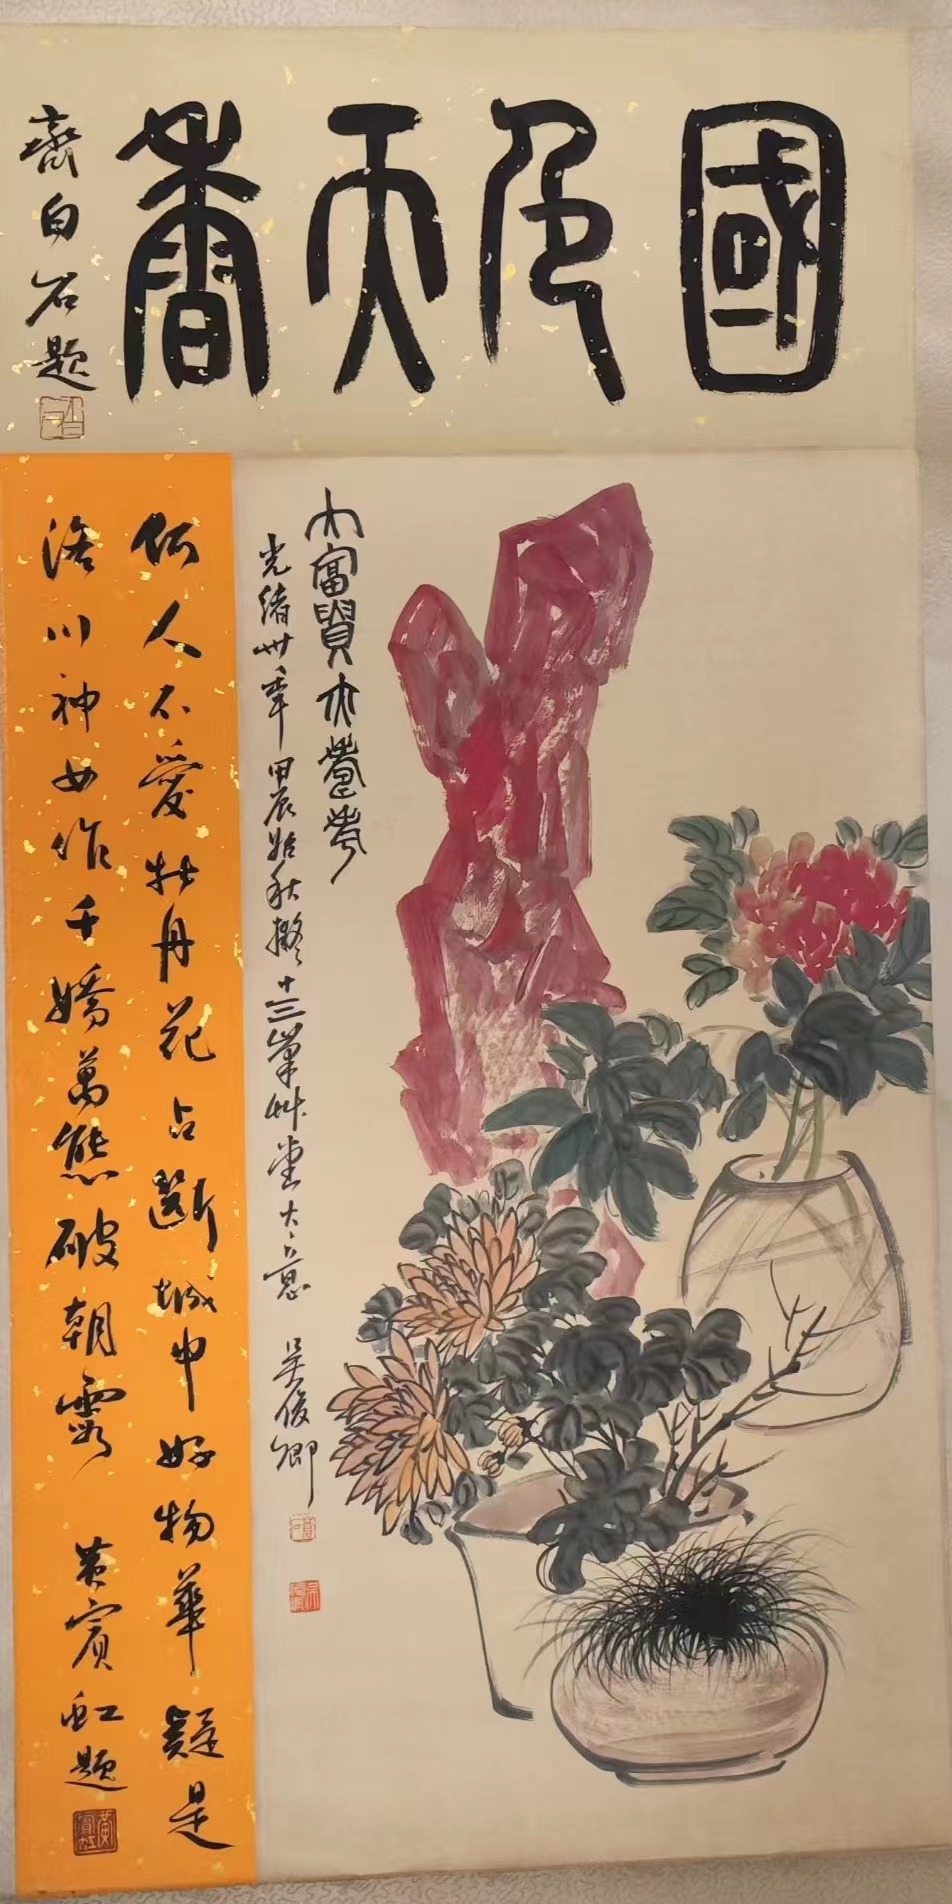 國色天香
齊白石題
大富貴亦壽考
光緒卅年甲辰始秋擬十三峯艸堂大意 吴俊卿
何人不愛牡丹花占斷城中好物華疑是
洛川神女作千嬌萬態破朝霞 黄賓虹題